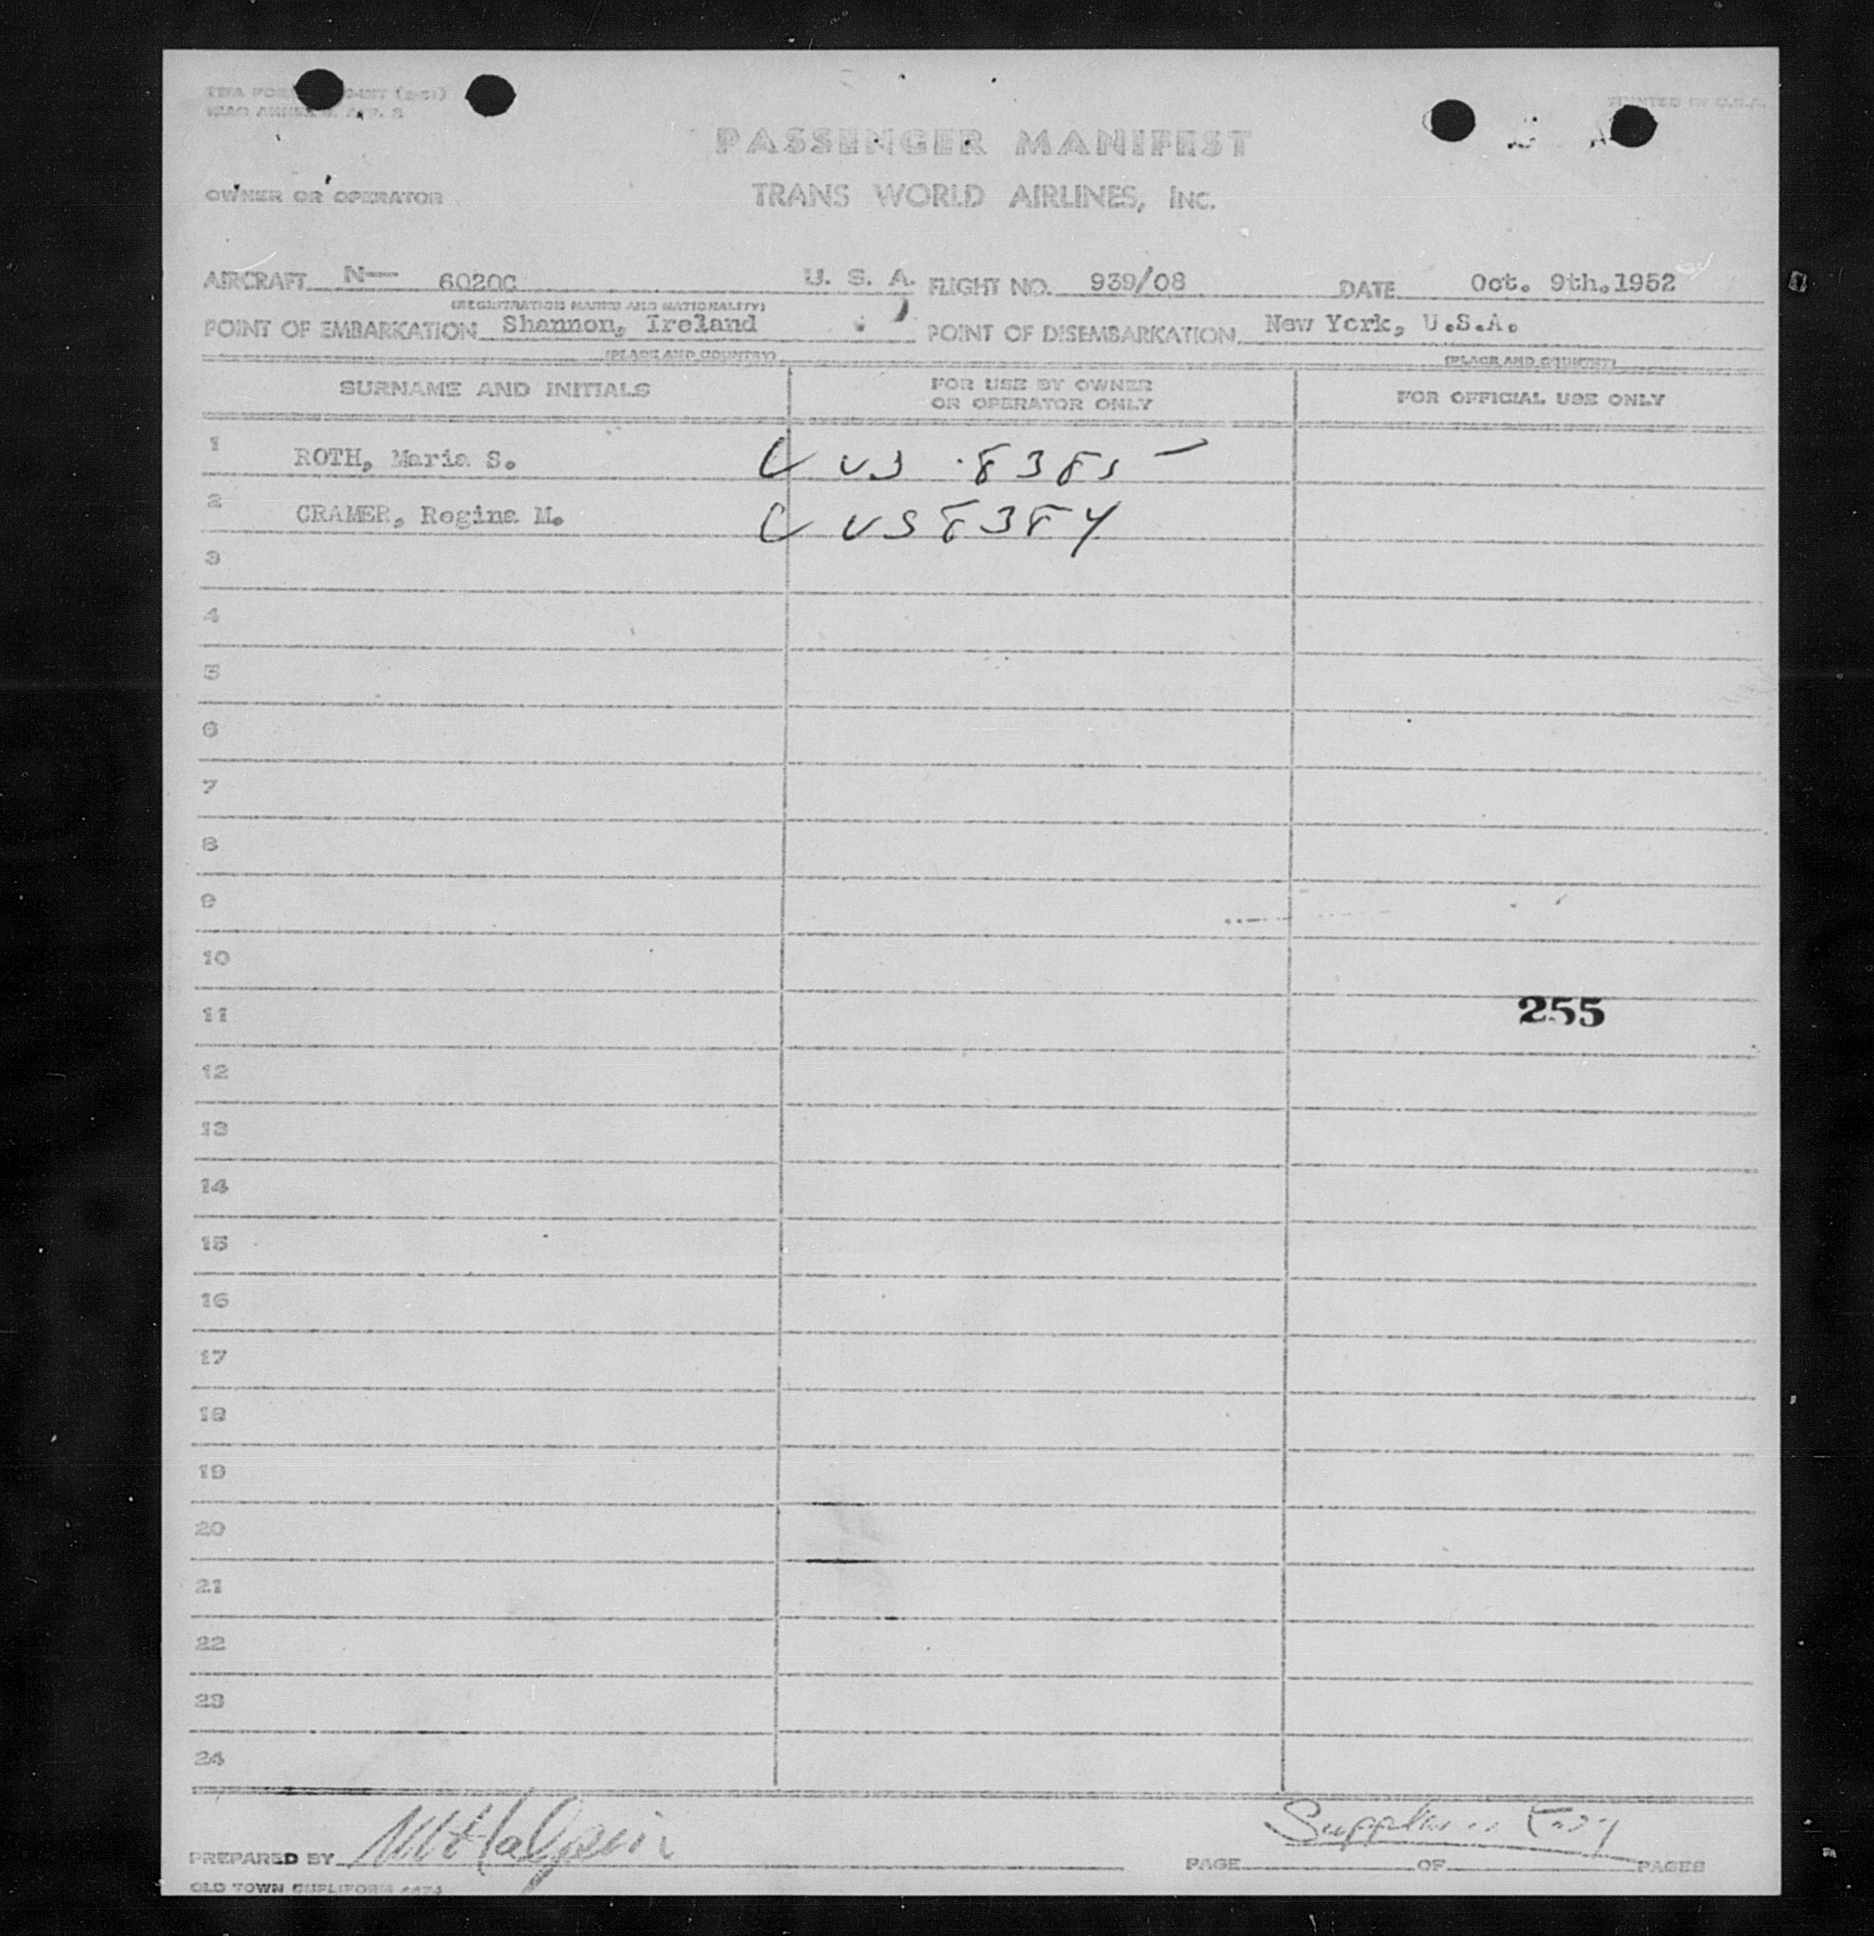 PRINTED IN U.S.A.
PASSENGER MANIFEST
OWNER OR OPERATOR TRANS WORLD AIRLINES, INC.
AIRCRAFT N— 6020C U. S. A. FLIGHT NO. 939/08 DATE Oct. 9th.1952
(REGISTRATION MARKS AND NATIONALITY)
POINT OF EMBARKATION Shannon, Ireland POINT OF DISEMBARKATION New York, U.S.A.
(PLACE AND COUNTRY) (PLACE AND COUNTRY)
SURNAME AND INITIALS FOR USE BY OWNER OR OPERATOR ONLY FOR OFFICIAL USE ONLY
1 ROTH, Maria S.
2 CRAMER, Regina M.
3
4
5
6
7
8
9
10
11 255
12
13
14
15
16
17
18
19
20
21
22
23
24
PREPARED BY M Halpin PAGE OF PAGES
OLD TOWN